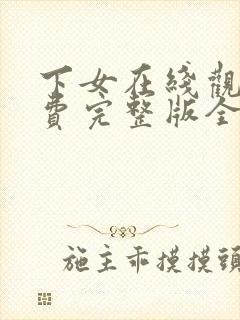 下女在綫觀
費完整版全
施主乖摸摸頭